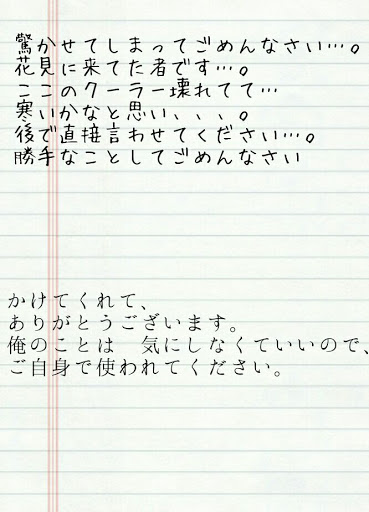 驚かせてしまってごめんなさい…。
花見に来てた者です…。
ここのクーラー壊れてて…
寒いかなと思い、、、。
後で直接言わせてください…。
勝手なことしてごめんなさい
かけてくれて、
ありがとうございます。
俺のことは　気にしなくていいので、
ご自身で使われてください。